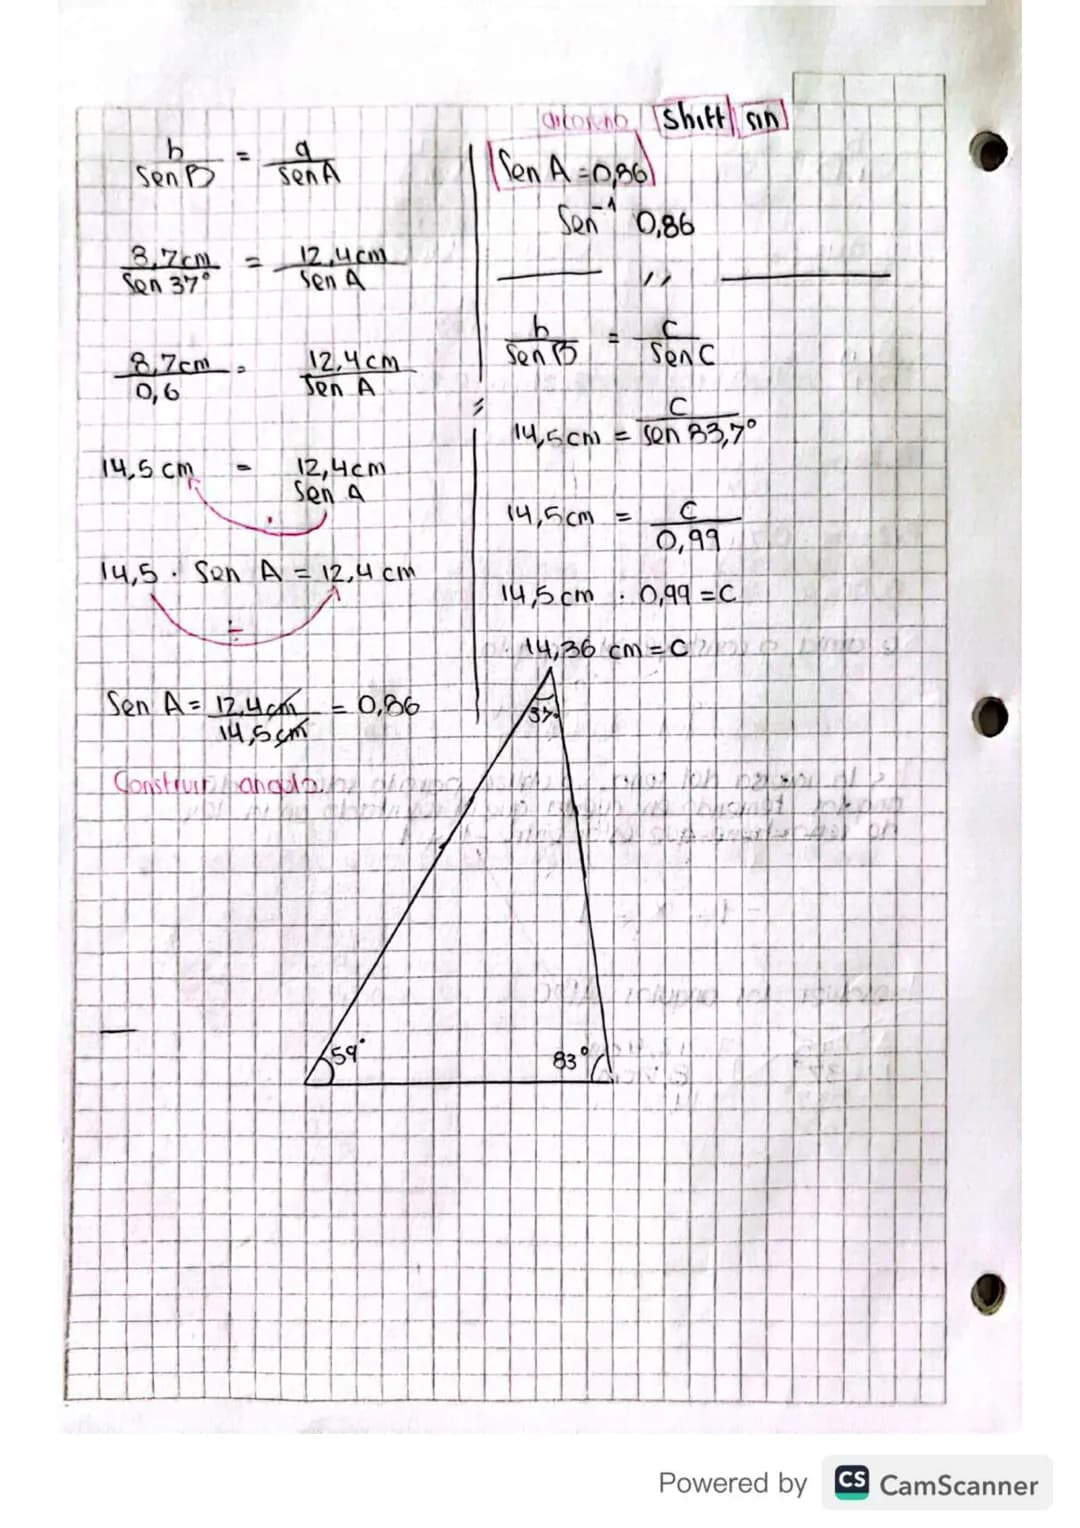 b / Sen B = a / Sen A
8,7cm / Sen 37° = 12,4cm / Sen A
8,7cm / 0,6 = 12,4cm / Sen A
14,5 cm = 12,4cm / Sen A
14,5 · Sen A = 12,4 cm
÷
Sen A = 12,4cm / 14,5cm = 0,86
Shift sin
Sen A = 0,86
Sen⁻¹ 0,86
b / Sen B = c / Sen C
14,5cm = c / Sen 83,7°
14,5cm = c / 0,99
14,5cm · 0,99 = C
14,36 cm = C
Construir angulo
37°
59°
83°
Powered by CS CamScanner